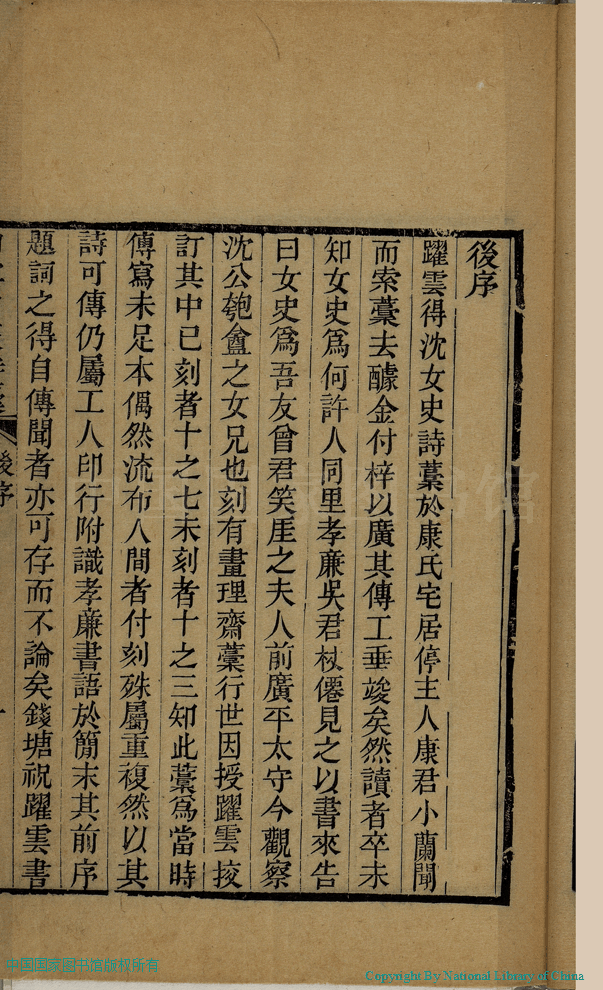 後序
躍雲得沈女史詩藳於康氏宅居停主人康君小蘭聞
而索藳去醵金付梓以廣其傳工垂竣矣然讀者卒未
知女史爲何許人同里孝廉吳君杖僊見之以書來告
曰女史爲吾友曾君笑厓之夫人前廣平太守今觀察
沈公匏盦之女兄也刻有畫理齋藳行世因授躍雲挍
訂其中已刻者十之七未刻者十之三知此藳爲當時
傳寫未足本偶然流布人間者付刻殊屬重複然以其
詩可傳仍屬工人印行附識孝廉書語於簡末其前序
題詞之得自傳聞者亦可存而不論矣錢塘祝躍雲書
後序
一
中国国家图书馆版权所有
Copyright By National Library of China